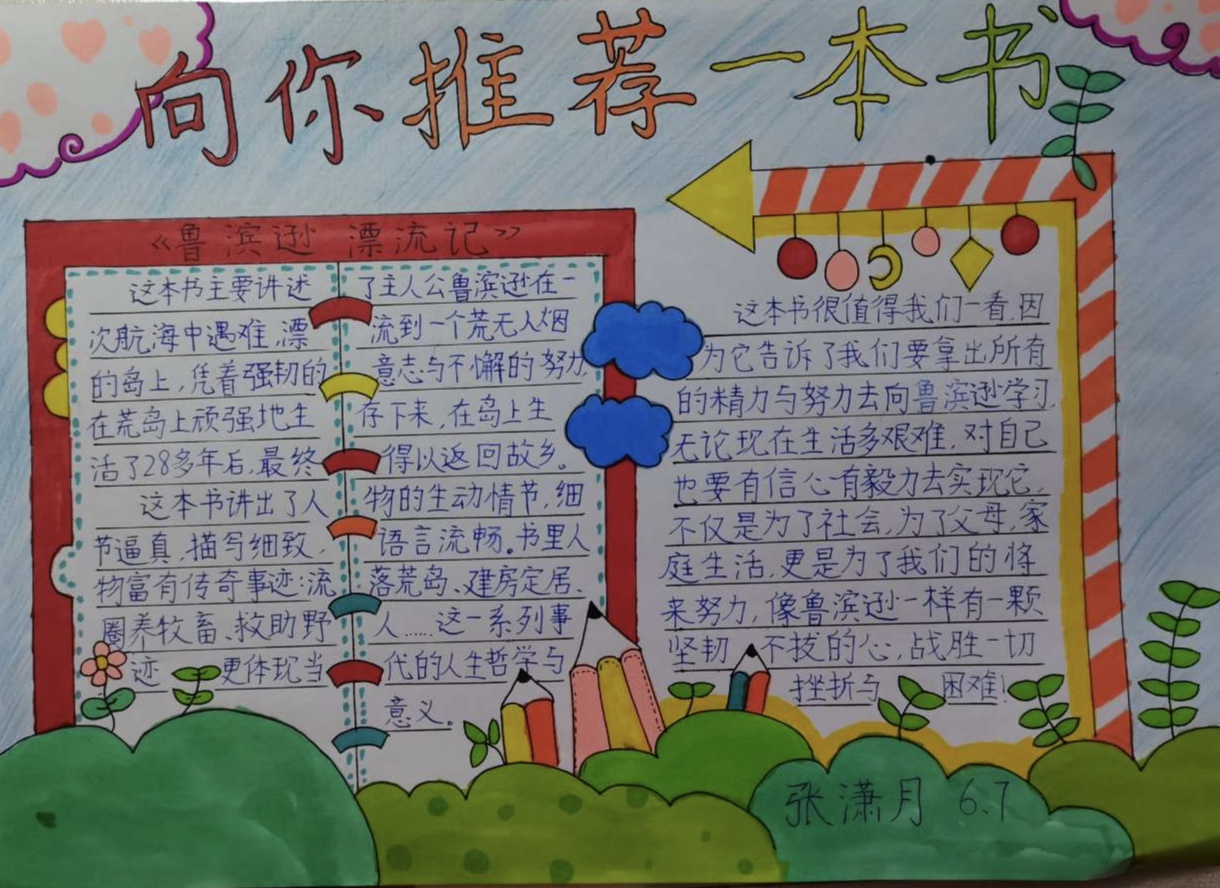 向你推荐一本书
《鲁滨逊 漂流记》
这本书主要讲述了主人公鲁滨逊在一
次航海中遇难,漂流到一个荒无人烟
的岛上,凭着强韧的意志与不懈的努力,
在荒岛上顽强地生存下来,在岛上生
活了28多年后,最终得以返回故乡。
这本书讲出了人物的生动情节,细
节逼真,描写细致,语言流畅。书里人
物富有传奇事迹:流落荒岛、建房定居、
圈养牧畜、救助野人……这一系列事
迹 更体现当代的人生哲学与
意义。
这本书很值得我们一看,因
为它告诉了我们要拿出所有
的精力与努力去向鲁滨逊学习,
无论现在生活多艰难,对自己
也要有信心有毅力去实现它,
不仅是为了社会,为了父母,家
庭生活,更是为了我们的将
来努力,像鲁滨逊一样有一颗
坚韧不拔的心,战胜一切
挫折与 困难!
张潇月 6.7